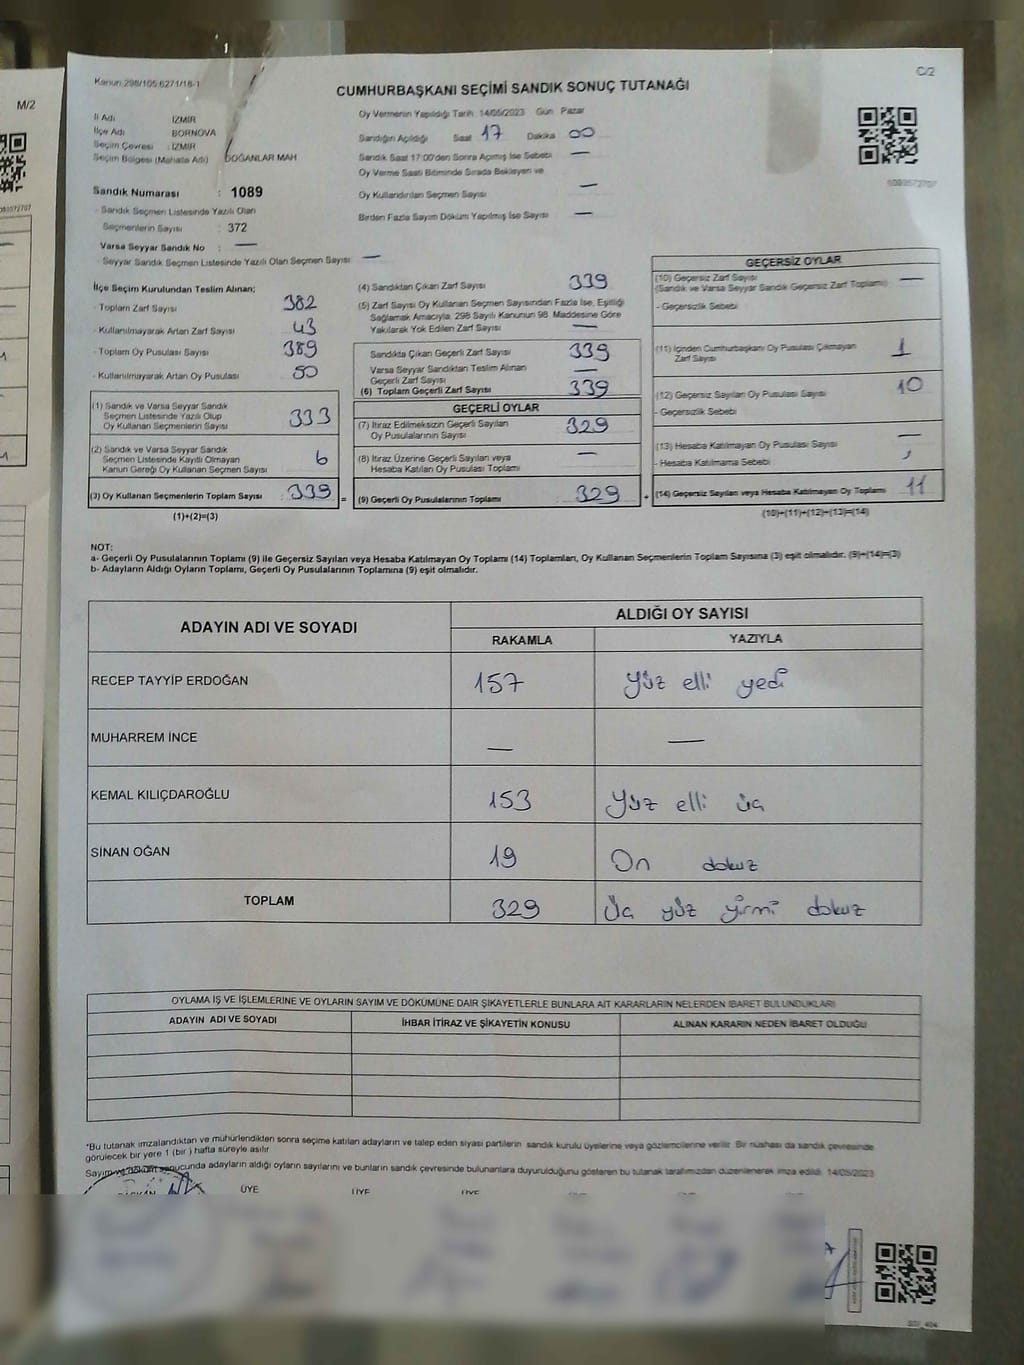 M/2
Kanun:298/105.6271/16-1
C/2
CUMHURBAŞKANI SEÇİMİ SANDIK SONUÇ TUTANAĞI
İl Adı İZMİR
İlçe Adı BORNOVA
Seçim Çevresi : İZMİR
Seçim Bölgesi (Mahalle Adı) DOĞANLAR MAH
Sandık Numarası : 1089
- Sandık Seçmen Listesinde Yazılı Olan
Seçmenlerin Sayısı : 372
Varsa Seyyar Sandık No : —
- Seyyar Sandık Seçmen Listesinde Yazılı Olan Seçmen Sayısı —
Oy Vermenin Yapıldığı Tarih 14/05/2023 Gün Pazar
Sandığın Açıldığı Saat 17 Dakika 00
Sandık Saat 17:00'den Sonra Açımış İse Sebebi —
Oy Verme Saati Bitiminde Sırada Bekleyen ve
Oy Kullandırılan Seçmen Sayısı —
Birden Fazla Sayım Döküm Yapılmış İse Sayısı —
İlçe Seçim Kurulundan Teslim Alınan;
- Toplam Zarf Sayısı 382
- Kullanılmayarak Artan Zarf Sayısı 43
- Toplam Oy Pusulası Sayısı 389
- Kullanılmayarak Artan Oy Pusulası 50
(1) Sandık ve Varsa Seyyar Sandık
Seçmen Listesinde Yazılı Olup
Oy Kullanan Seçmenlerin Sayısı 333
(2) Sandık ve Varsa Seyyar Sandık
Seçmen Listesinde Kayıtlı Olmayan
Kanun Gereği Oy Kullanan Seçmen Sayısı 6
(3) Oy Kullanan Seçmenlerin Toplam Sayısı : 339 =
(1)+(2)=(3)
(4) Sandıktan Çıkan Zarf Sayısı 339
(5) Zarf Sayısı Oy Kullanan Seçmen Sayısından Fazla İse, Eşitliği
Sağlamak Amacıyla, 298 Sayılı Kanunun 98. Maddesine Göre
Yakılarak Yok Edilen Zarf Sayısı —
Sandıkta Çıkan Geçerli Zarf Sayısı 339
Varsa Seyyar Sandıktan Teslim Alınan
Geçerli Zarf Sayısı —
(6) Toplam Geçerli Zarf Sayısı 339
GEÇERLİ OYLAR
(7) İtiraz Edilmeksizin Geçerli Sayılan
Oy Pusulalarının Sayısı 329
(8) İtiraz Üzerine Geçerli Sayılan veya
Hesaba Katılan Oy Pusulası Toplamı —
(9) Geçerli Oy Pusulalarının Toplamı 329 +
GEÇERSİZ OYLAR
(10) Geçersiz Zarf Sayısı —
(Sandık ve Varsa Seyyar Sandık Geçersiz Zarf Toplamı)
- Geçersizlik Sebebi
(11) İçinden Cumhurbaşkanı Oy Pusulası Çıkmayan
Zarf Sayısı 1
(12) Geçersiz Sayılan Oy Pusulası Sayısı 10
- Geçersizlik Sebebi
(13) Hesaba Katılmayan Oy Pusulası Sayısı —
- Hesaba Katılmama Sebebi
(14) Geçersiz Sayılan veya Hesaba Katılmayan Oy Toplamı 11
(10)+(11)+(12)+(13)=(14)
NOT:
a- Geçerli Oy Pusulalarının Toplamı (9) ile Geçersiz Sayılan veya Hesaba Katılmayan Oy Toplamı (14) Toplamları, Oy Kullanan Seçmenlerin Toplam Sayısına (3) eşit olmalıdır. (9)+(14)=(3)
b- Adayların Aldığı Oyların Toplamı, Geçerli Oy Pusulalarının Toplamına (9) eşit olmalıdır.
ADAYIN ADI VE SOYADI ALDIĞI OY SAYISI
RAKAMLA YAZIYLA
RECEP TAYYİP ERDOĞAN 157 Yüz elli yedi
MUHARREM İNCE — —
KEMAL KILIÇDAROĞLU 153 Yüz elli üç
SİNAN OĞAN 19 On dokuz
TOPLAM 329 Üç yüz yirmi dokuz
OYLAMA İŞ VE İŞLEMLERİNE VE OYLARIN SAYIM VE DÖKÜMÜNE DAİR ŞİKAYETLERLE BUNLARA AİT KARARLARIN NELERDEN İBARET BULUNDUKLARI
ADAYIN ADI VE SOYADI İHBAR İTİRAZ VE ŞİKAYETİN KONUSU ALINAN KARARIN NEDEN İBARET OLDUĞU
*Bu tutanak imzalandıktan ve mühürlendikten sonra seçime katılan adayların ve talep eden siyasi partilerin sandık kurulu üyelerine veya gözlemcilerine verilir. Bir nüshası da sandık çevresinde
görülecek bir yere 1 (bir) hafta süreyle asılır.
Sayım ve döküm sonucunda adayların aldığı oyların sayılarını ve bunların sandık çevresinde bulunanlara duyurulduğunu gösteren bu tutanak tarafımızdan düzenlenerek imza edildi. 14/05/2023
BAŞKAN ÜYE ÜYE ÜYE